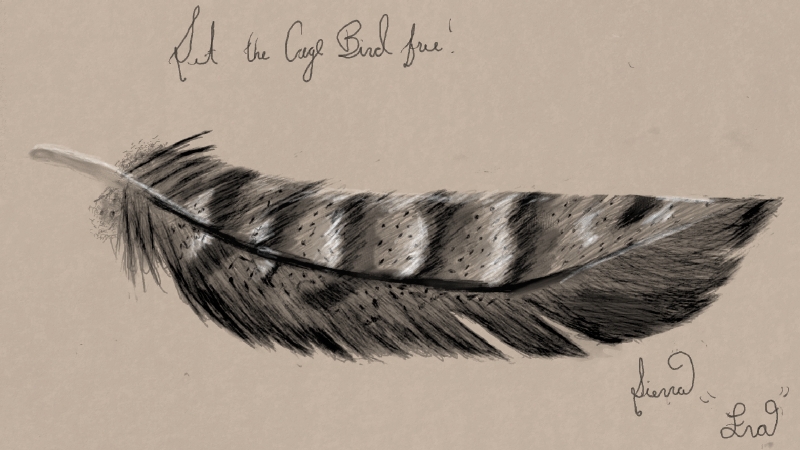 Set the Cage Bird free!
Sierra
"Lra"